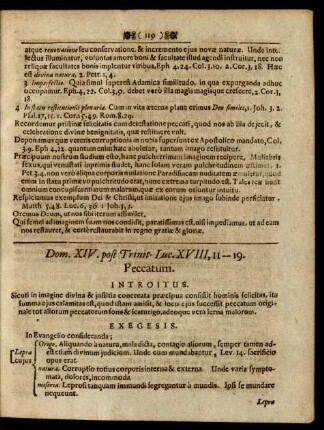 (119)
atque renovatione seu conservatione, & incremento ejus novæ naturæ. Unde intel-
lectus illuminatur, voluntas amore boni & facultate illud agendi instruitur, nec non
reliquæ facultates bonis implentur viribus, Eph. 4.24. Col. 3.10. 2. Cor. 3, 18. Hæc
est divina natura, 2. Petr. 1, 4.
3 Imperfectio. Quia simul superest Adamica similitudo, in qua expurganda adhuc
occupamur. Eph. 4, 22. Col. 3, 9. debet verò illa magis magisque crescere, 2. Cor. 3,
18.
4 In statu restitutionis plenariæ. Cum in vita æterna planè erimus Deo similes, 1. Joh. 3. 2.
Psal. 17, 15. 1. Cor. 15.49. Rom. 8.29.
Recordemur pristinæ felicitatis cum detestatione peccati, quod nos ab illa dejecit, &
celebratione divinæ benignitatis, quæ restituere vult.
Deponamus quæ veteris corruptionis in nobis supersunt ex Apostolico mandato, Col.
3.9. Eph. 4, 22. quantum enim hæc abolentur, tantum imago restituitur.
Præcipuum nostrum studium esto, hanc pulcherrimam imaginem reficere. Muliebris
sexus, qui venustati imprimis studet, hanc solam veram pulchritudinem æstimet. 1.
Pet. 3.4. non verò aliquæ corporis nuditatem Paradisiacam nuditatem æmulentur, quod
enim in statu primævo pulchritudo erat, nunc extrema turpitudo est. Tales reæ sunt
omnium concupiscentiarum malarum quæ ex earum intuitu
Respiciamus exemplum Dei & Christi, ut imitatione ejus imago subinde perficiatur.
Matth. 5.48. Luc. 6, 36. 1. Joh. 3, 3.
Oremus Deum, ut nos sibi iterum assimilet.
Qui semel ad imaginem suam nos condidit, paratissimus est, nisi impediamus, ut ad eam
nos restauret, & certè restaurabit in regno gratiæ & gloriæ.
Dom. XIV. post Trinit. Luc. XVIII, 11--19.
Peccatum.
INTROITUS.
Sicuti in imagine divina & justitia concreata præcipua consistit hominis felicitas, ita
summa ejus calamitas est, quod istam amisit, & loco ejus successit peccatum origi-
nale tot aliorum peccatorum fons & scaturigo, adeoque vera lerna malorum.
EXEGESIS.
In Evangelio consideranda;
Lepra
cujus
Origo. Aliquando à natura, mala dicta, contagio aliorum, semper tamen ad-
est etiam divinum judicium. Unde cum mundabantur, Lev. 14. sacrificio
opus erat.
natura. Corruptio totius corporis interna & externa. Unde varia sympto-
mata, dolores, incommoda
miseria. Leprosi tanquam immundi segregantur à mundis. Ipsi se mundare
nequeunt.
Lepra